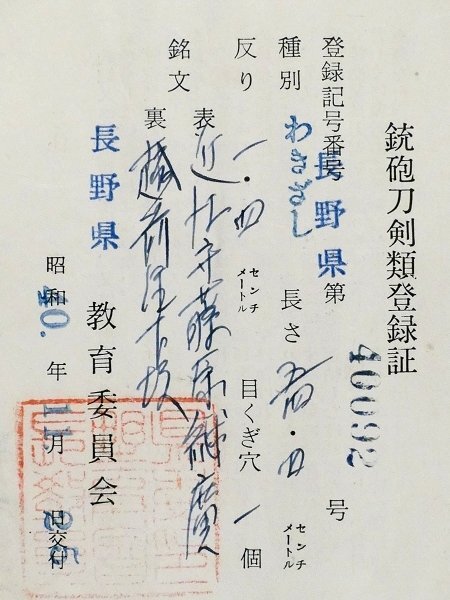 銃砲刀剣類登録証
登録記号番号 長野県 第 40092 号
種別 わきざし 長さ ・四 センチメートル
反り 一・四 センチメートル 目くぎ穴 一 個
銘文 表 近江守藤原継廣
裏 越前住下坂
長野県 教育委員会
昭和 40. 年 11 月 25 日交付